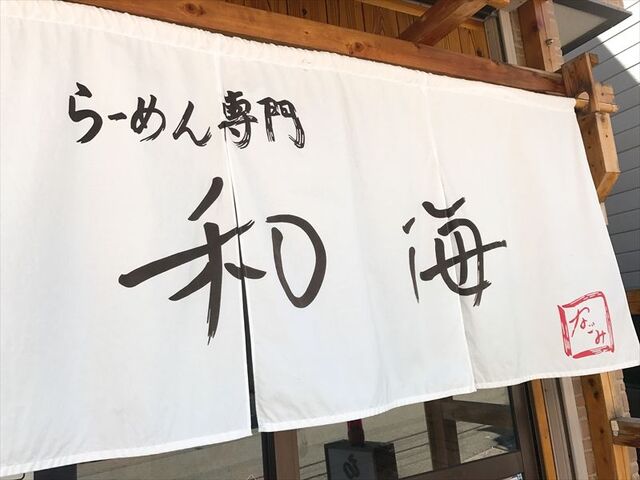 らーめん専門
和海
なごみ